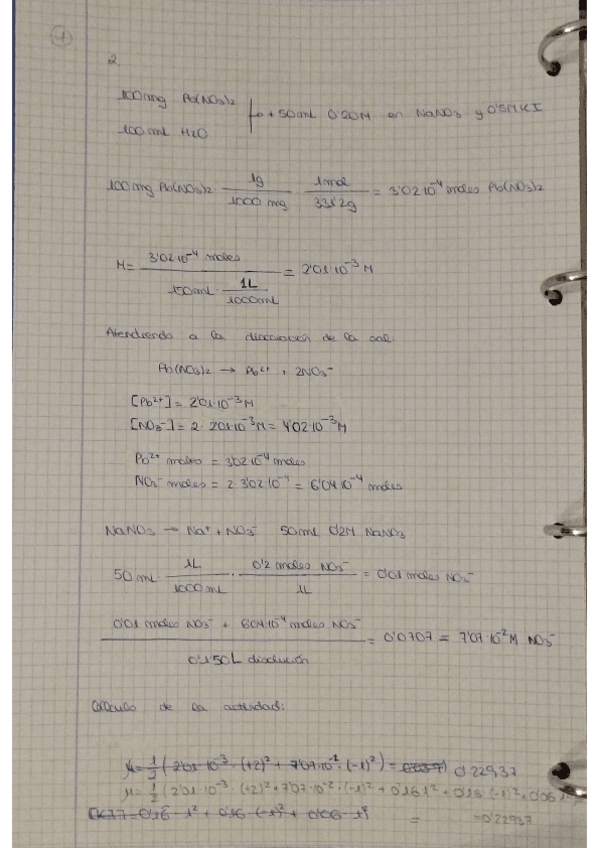 1
2.
100mg Pb(NO3)2
+ 50mL 0'20M en NaNO3 y 0'5M KI
100 mL H2O
100mg Pb(NO3)2 · 1g / 1000 mg · 1mol / 331'2g = 3'02·10⁻⁴ moles Pb(NO3)2
M = 3'02·10⁻⁴ moles / 150mL · 1L / 1000mL = 2'01·10⁻³ M
Atendiendo a la disociación de la sal:
Pb(NO3)2 → Pb²⁺ + 2NO3⁻
[Pb²⁺] = 2'01·10⁻³ M
[NO3⁻] = 2 · 2'01·10⁻³ M = 4'02·10⁻³ M
Pb²⁺ moles = 3'02·10⁻⁴ moles
NO3⁻ moles = 2·3'02·10⁻⁴ = 6'04·10⁻⁴ moles
NaNO3 → Na⁺ + NO3⁻ 50mL 0'2M NaNO3
50 mL · 1L / 1000 mL · 0'2 moles NO3⁻ / 1L = 0'01 moles NO3⁻
0'01 moles NO3⁻ + 6'04·10⁻⁴ moles NO3⁻ / 0'150L disolución = 0'0707 = 7'07·10⁻² M NO3⁻
Cálculo de la actividad:
μ = 1/2 (2'01·10⁻³ · (+2)² + 7'07·10⁻² · (-1)²) = 0'22937
μ = 1/2 (2'01·10⁻³ · (+2)² + 7'07·10⁻² · (-1)² + 0'16·1² + 0'16 · (-1)² + 0'06·1
0'16·1² + 0'16 · (-1)² + 0'06·1² = =0'22937